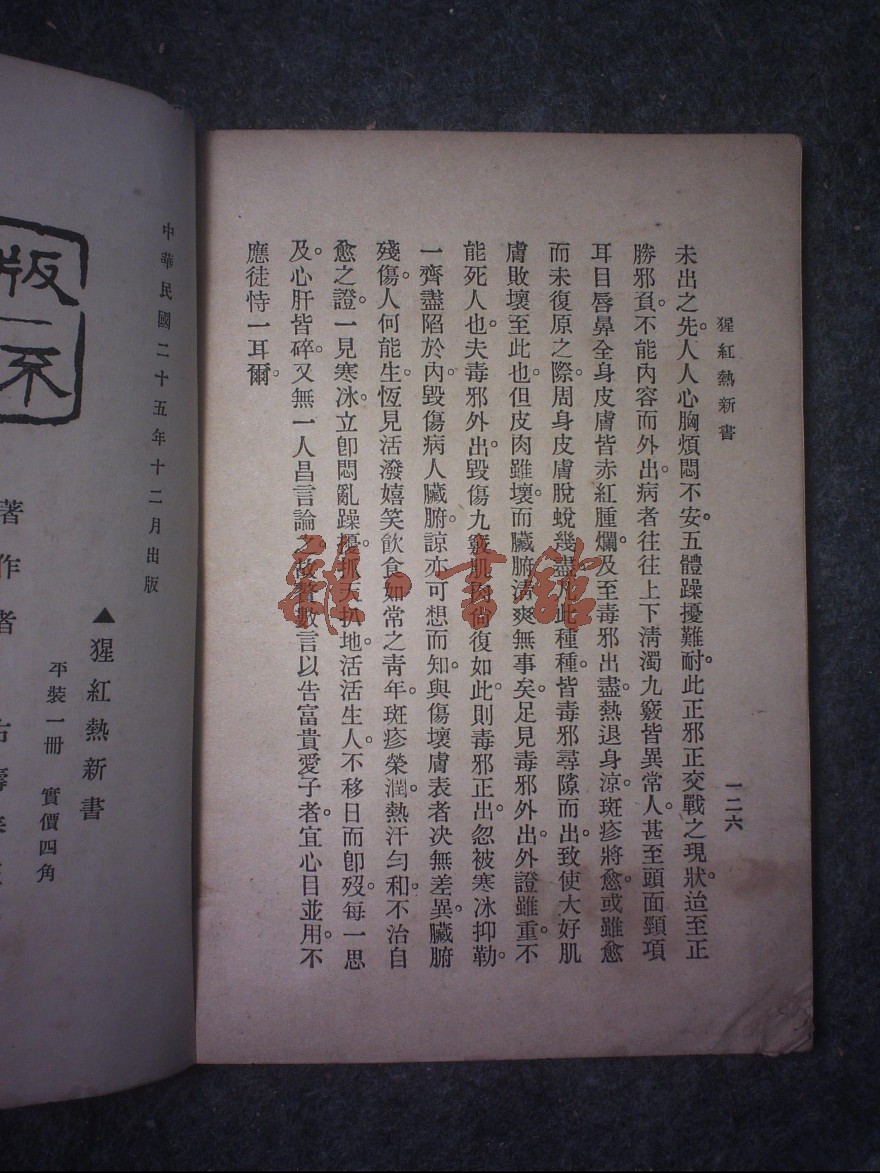 猩紅熱新書
一二六
未出之先。人人心胸煩悶不安。五體躁擾難耐。此正邪正交戰之現狀。迨至正
勝邪負。不能內容而外出。病者往往上下淸濁九竅皆異常人。甚至頭面頸項
耳目唇鼻全身皮膚皆赤紅腫爛。及至毒邪出盡。熱退身涼。斑疹將愈。或雖愈
而未復原之際。周身皮膚脫蛻幾盡。凡此種種。皆毒邪尋隙而出。致使大好肌
膚敗壞至此也。但皮肉雖壞。而臟腑淸爽無事矣。足見毒邪外出。外證雖重。不
能死人也。夫毒邪外出。毀傷九竅肌肉。尙復如此。則毒邪正出。忽被寒冰抑勒。
一齊盡陷於內。毀傷病人臟腑。諒亦可想而知。與傷壞膚表者決無差異。臟腑
殘傷。人何能生。恆見活潑嬉笑飲食如常之靑年。斑疹榮潤。熱汗勻和。不治自
愈之證。一見寒冰。立卽悶亂躁擾。抓天扒地。活活生人。不移日而卽歿。每一思
及。心肝皆碎。又無一人昌言論之。故贅數言以吿富貴愛子者。宜心目並用。不
應徒恃一耳爾。
雅・書館
中華民國二十五年十二月出版
版
不
▲猩紅熱新書
平裝一冊 實價四角
著作者